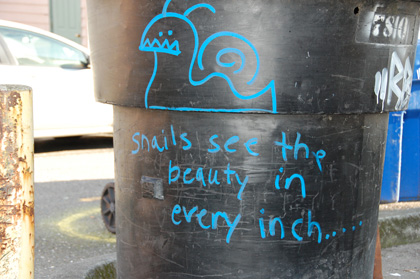 snails see the
beauty in
every inch.....